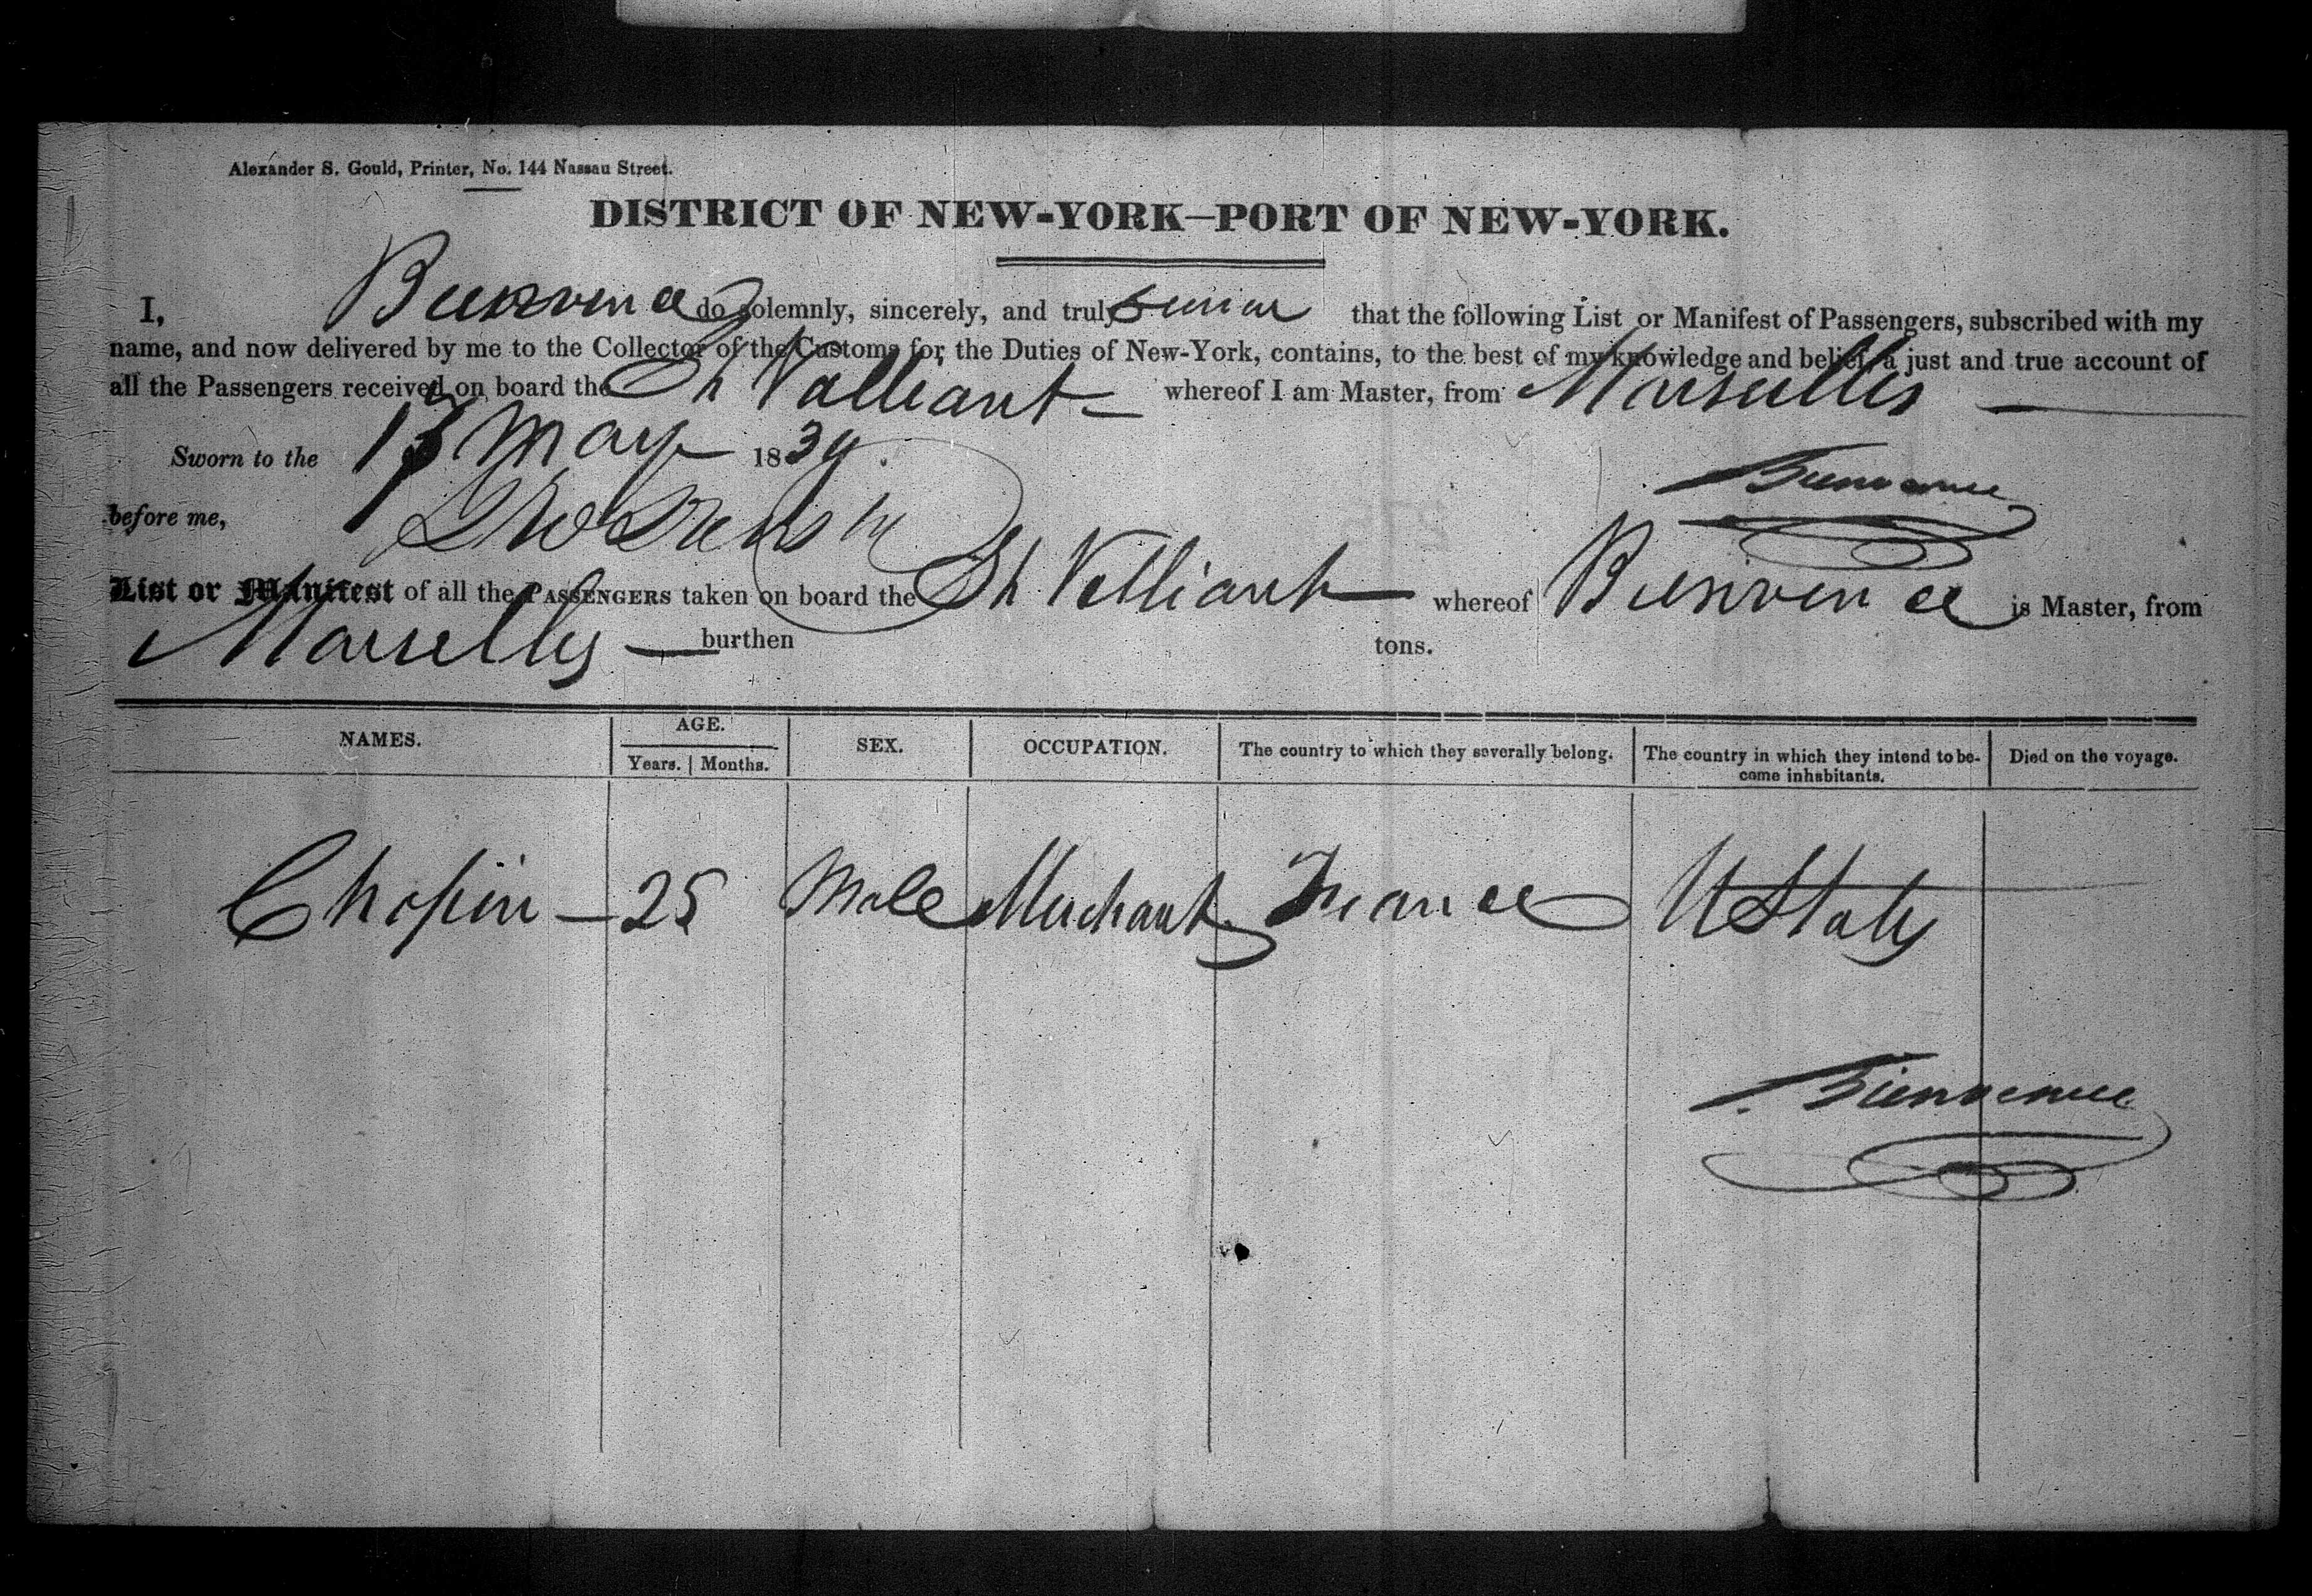 Alexander S. Gould, Printer, No. 144 Nassau Street.
DISTRICT OF NEW-YORK—PORT OF NEW-YORK.
I, Bienvenue do solemnly, sincerely, and truly swear that the following List or Manifest of Passengers, subscribed with my
name, and now delivered by me to the Collector of the Customs for the Duties of New-York, contains, to the best of my knowledge and belief, a just and true account of
all the Passengers received on board the Sh Valliant — whereof I am Master, from Marseilles —
Sworn to the 13 May 1839.
Bienvenue
before me,
List or Manifest of all the PASSENGERS taken on board the Sh Valliant — whereof Bienvenue is Master, from
Marselles — burthen tons.
NAMES. AGE. SEX. OCCUPATION. The country to which they severally belong. The country in which they intend to be- Died on the voyage.
Years. | Months. come inhabitants.
Chopin — 25 Male Merchant France U States
Bienvenue